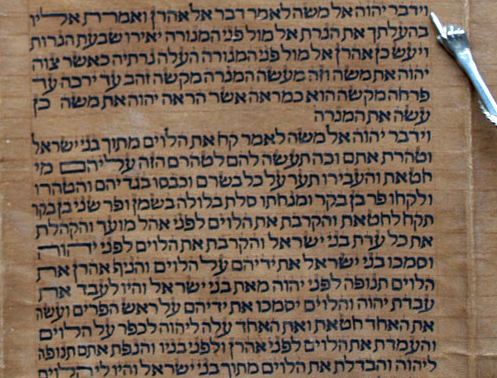 וידבר יהוה אל משה לאמר דבר אל אהרן ואמרת אליו
בהעלתך את הנרת אל מול פני המנורה יאירו שבעת הנרות
ויעש כן אהרן אל מול פני המנורה העלה נרתיה כאשר צוה
יהוה את משה וזה מעשה המנרה מקשה זהב עד ירכה עד
פרחה מקשה הוא כמראה אשר הראה יהוה את משה כן
עשה את המנרה
וידבר יהוה אל משה לאמר קח את הלוים מתוך בני ישראל
וטהרת אתם וכה תעשה להם לטהרם הזה עליהם מי
חטאת והעבירו תער על כל בשרם וכבסו בגדיהם והטהרו
ולקחו פר בן בקר ומנחתו סלת בלולה בשמן ופר שני בן בקר
תקח לחטאת והקרבת את הלוים לפני אהל מועד והקהלת
את כל עדת בני ישראל והקרבת את הלוים לפני יהוה
וסמכו בני ישראל את ידיהם על הלוים והניף אהרן את
הלוים תנופה לפני יהוה מאת בני ישראל והיו לעבד את
עבדת יהוה והלוים יסמכו את ידיהם על ראש הפרים ועשה
את האחד חטאת ואת האחד עלה ליהוה לכפר על הלוים
והעמדת את הלוים לפני אהרן ולפני בניו והנפת אתם תנופה
ליהוה והבדלת את הלוים מתוך בני ישראל והיו לי הלוים